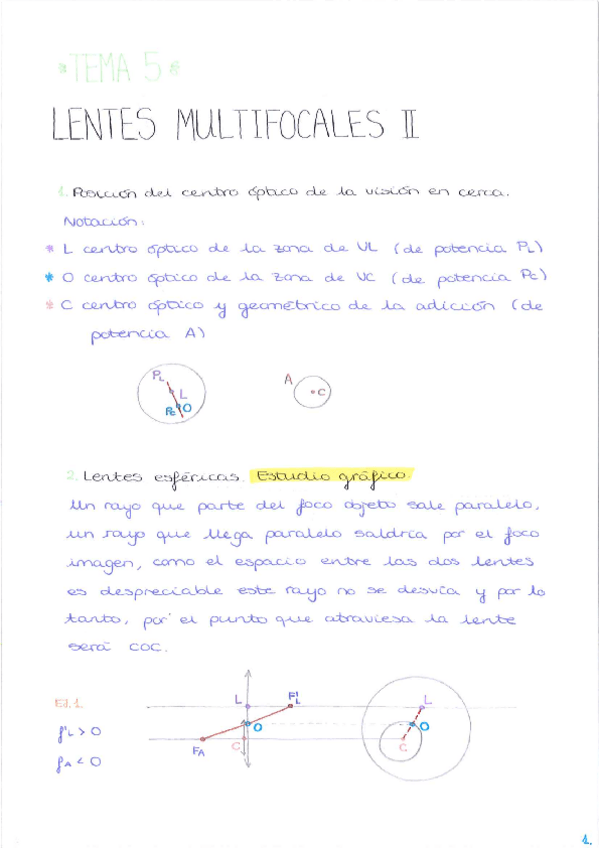 *TEMA 5*
LENTES MULTIFOCALES II
1. Posición del centro óptico de la visión en cerca.
Notación:
* L centro óptico de la zona de VL (de potencia PL)
* O centro óptico de la zona de VC (de potencia Pc)
* C centro óptico y geométrico de la adición (de
potencia A)
PL
L
Pc O
A
C
2. Lentes esféricas. Estudio gráfico.
Un rayo que parte del foco objeto sale paralelo,
un rayo que llega paralelo saldría por el foco
imagen, como el espacio entre las dos lentes
es despreciable este rayo no se desvía y por lo
tanto, por el punto que atraviesa la lente
será COC.
EJ. 1.
f'L > 0
fA < 0
L
F'L
O
C
FA
L
O
C
1.